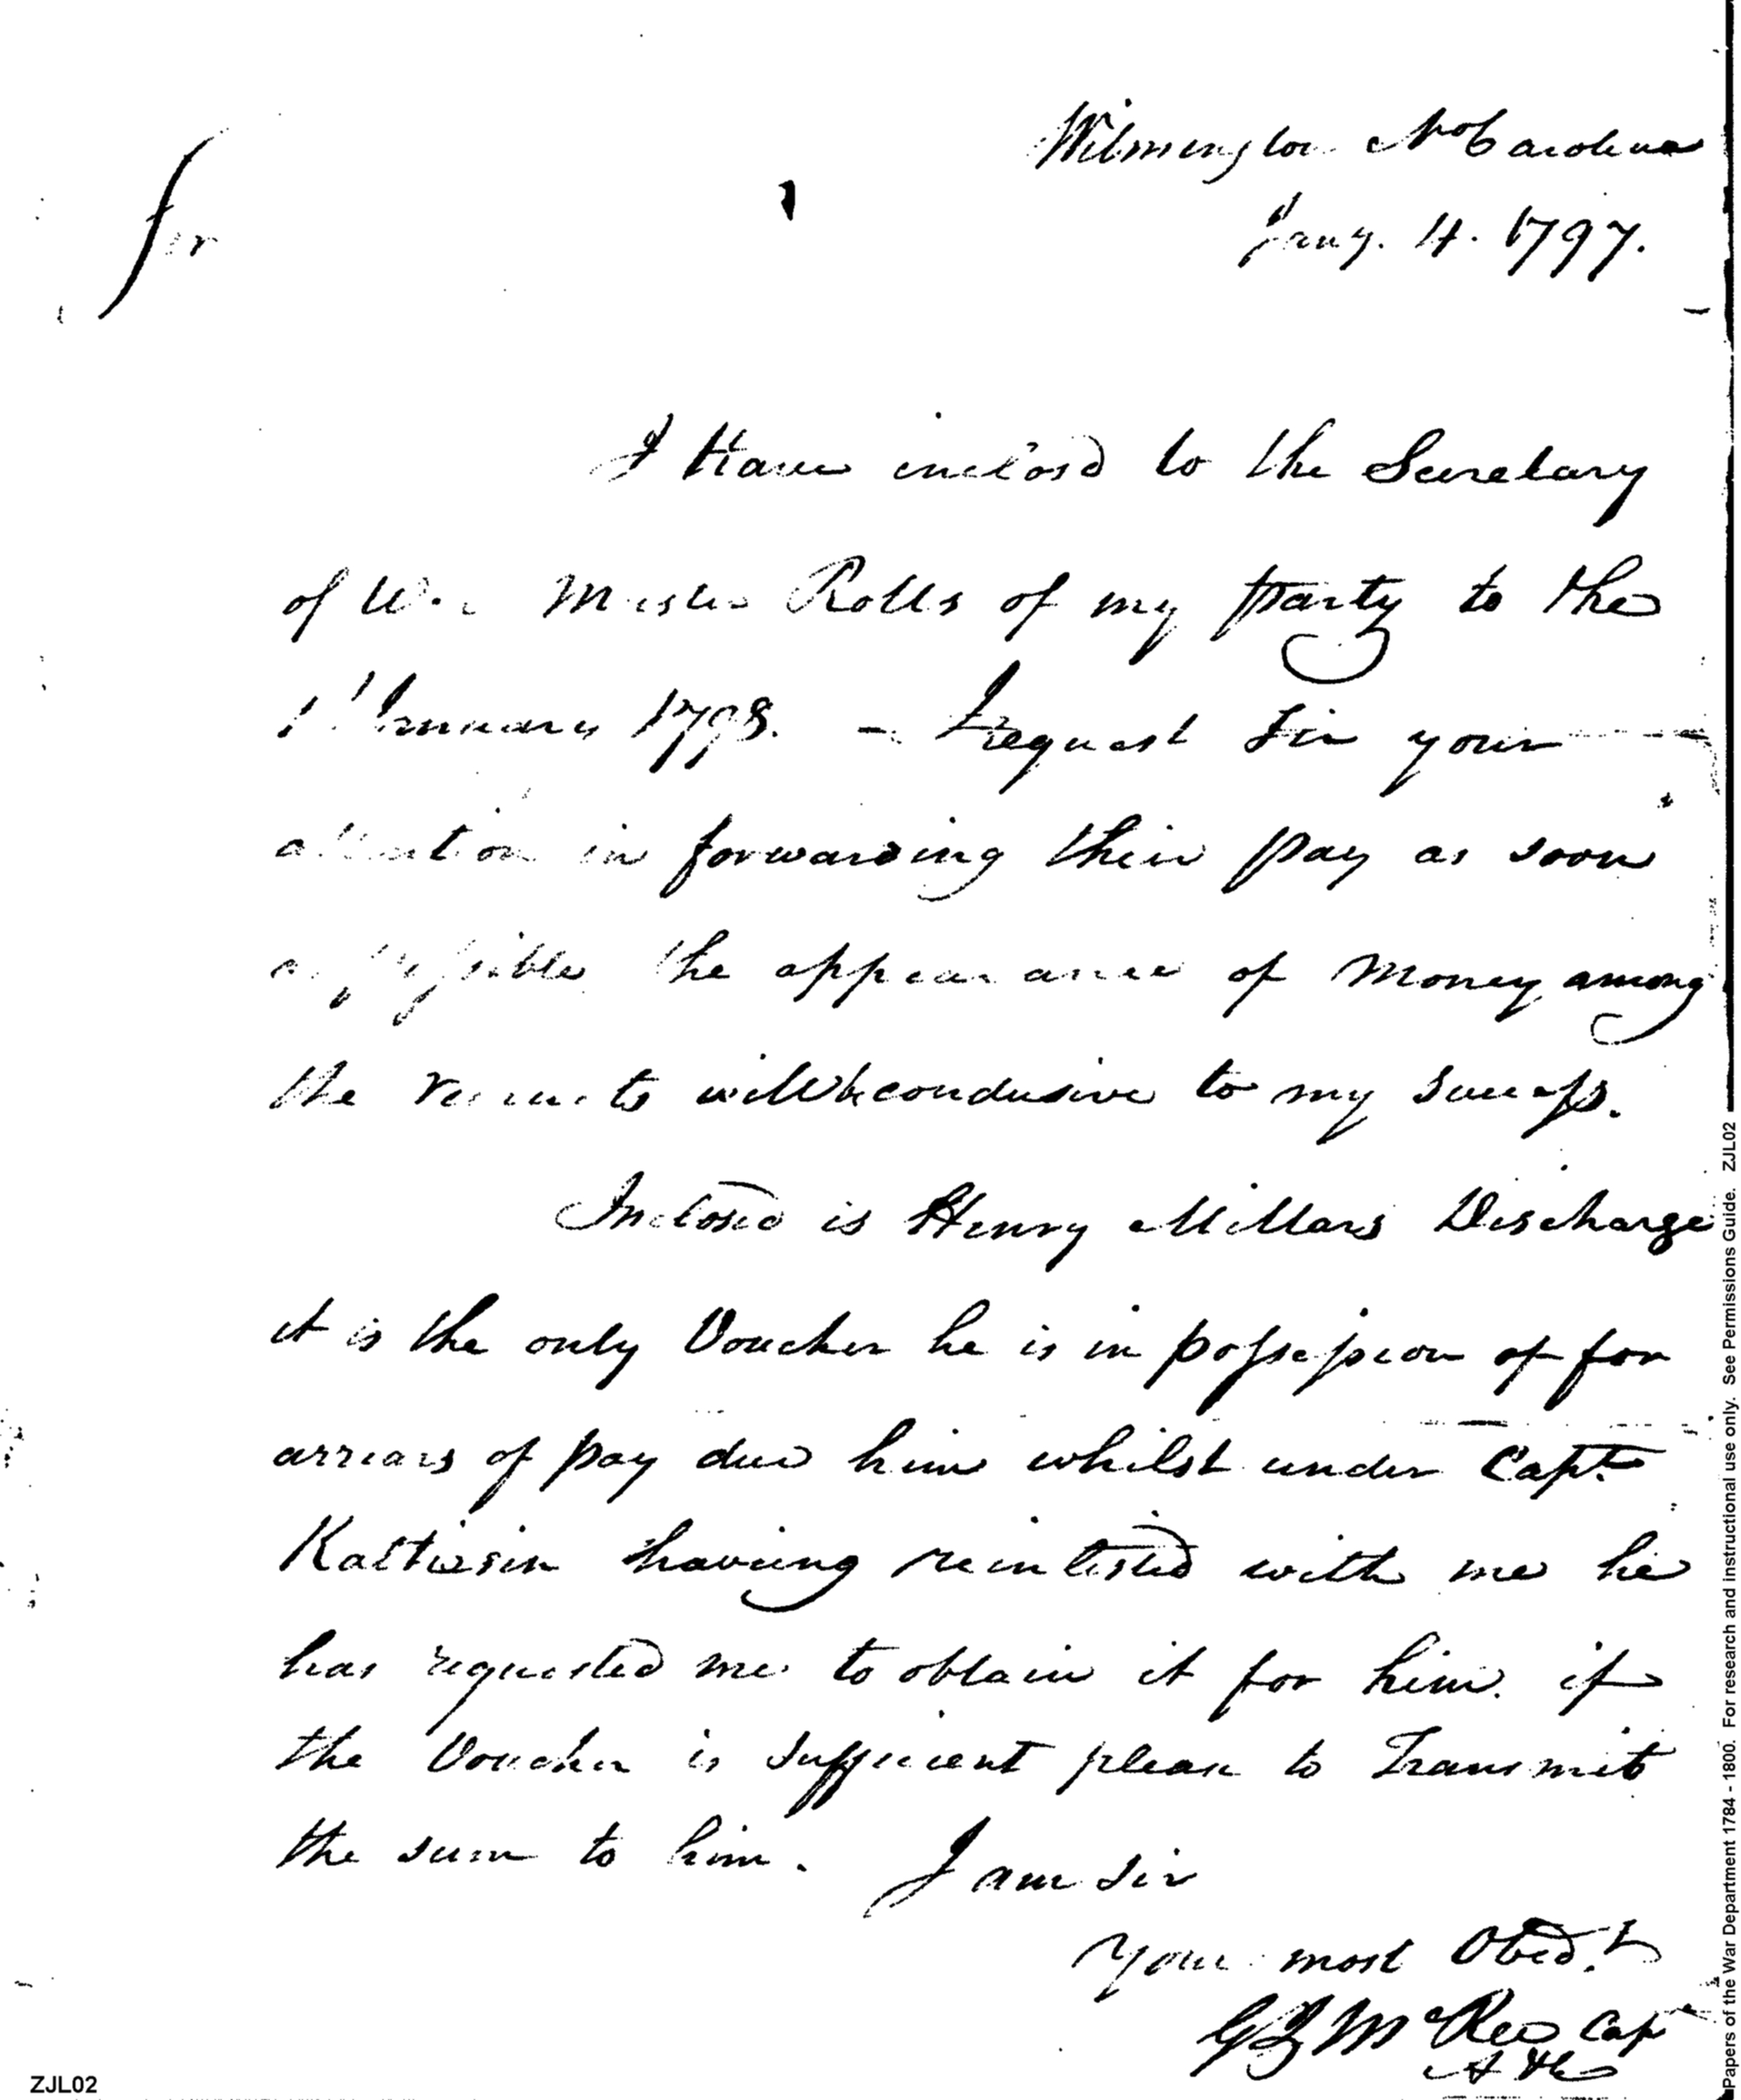 Wilmington No Carolina
Jany. 4. 1797.
Sir
I Have inclosd to the Secretary
of War Muster Rolls of my party to the
1st January 1798. - I request Sir your
attention in forwarding their pay as soon
as possible the appearance of Money among
the recruits will be condusive to my success.
Inclosed is Henry Millars Discharge
it is the only Voucher he is in possession of for
arriars of pay due him whilst under Capt.
Kalteisin having reinlisted with me he
has requested me to obtain it for him. if
the Voucher is sufficient please to Transmit
the sum to him. I am Sir
Your most Obedt
McRee Cap
ZJL02
Papers of the War Department 1784 - 1800. For research and instructional use only. See Permissions Guide. ZJL02